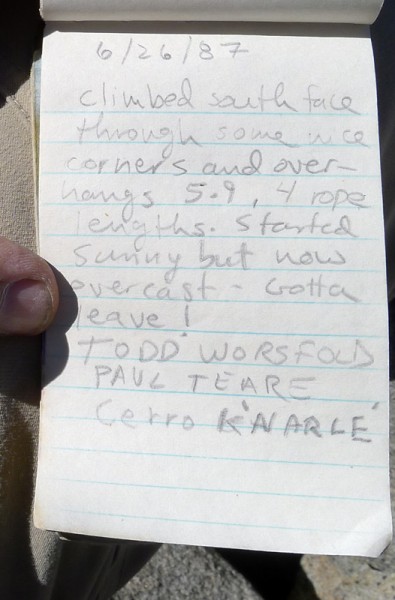 6/26/87
climbed south face
through some nice
corners and over-
hangs 5.9, 4 rope
lengths. Started
sunny but now
overcast - Gotta
leave!
TODD WORSFOLD
PAUL TEARE
Cerro K'NARLÉ